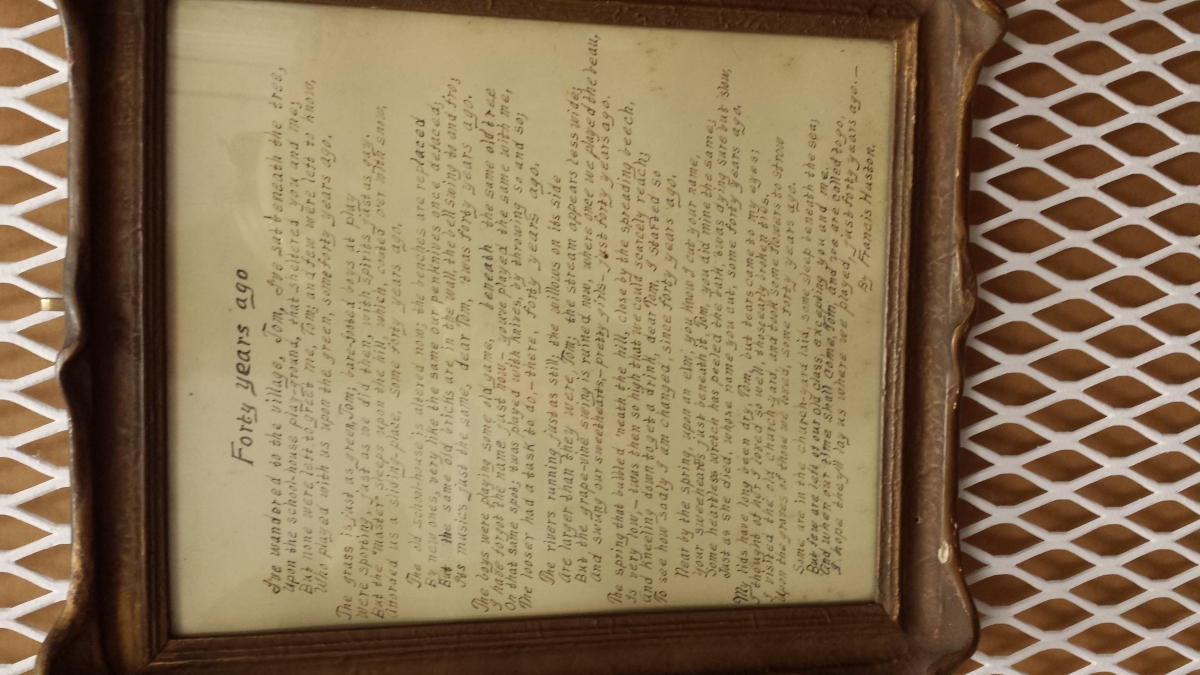 Forty years ago
I've wandered to the village, Tom, I've sat beneath the tree,
Upon the school-house play-ground, that sheltered you and me;
But none were left to greet me, Tom; and few were left to know,
Who played with us upon the green, some forty years ago.
The grass is just as green, Tom; bare-footed boys at play
Were sporting, just as we did then, with spirits just as gay.
But the "master" sleeps upon the hill, which, coated o'er with snow,
Afforded us a sliding-place, some forty years ago.
The old school-house is altered now; the benches are replaced
By new ones, very like the same our penknives defaced;
But the same old bricks are in the wall, the bell swings to and fro;
Its music's just the same, dear Tom, 'twas forty years ago.
The boys were playing some old game, beneath the same old tree
I have forgot the name just now,- you've played the same with me,
On that same spot; 'twas played with knives, by throwing so and so;
The loser had a task to do,- there, forty years ago.
The rivers running just as still; the willows on its side
are larger than they were, Tom; the stream appears less wide;
But the grape-vine swing is ruined now, where once we played the beau,
and swung our sweethearts,- pretty girls - just forty years ago.
The spring that bubbled 'neath the hill, close by the spreading beech,
Is very low,- 'twas then so high that we could scarcely reach;
And kneeling down to get a drink, dear Tom, I started so
To see how sadly I am changed since forty years ago.
Near by the spring, upon an elm, you know I cut your name,
Your sweetheart's just beneath it, Tom, you did mine the same;
Some heartless wretch has peeled the bark, 'twas dying sure but slow,
Just as she died, whose name you cut, some forty years ago.
My lids have long been dry, Tom, but tears came to my eyes;
I thought of her I loved so well, those early broken ties.
I visited the old church-yard, and took some flowers to strow
Upon the graves of those we loved, some forty years ago.
Some are in the church-yard laid, some sleep beneath the sea;
But few are left of our old class, excepting you and me.
And when our time shall come, Tom, and we are called to go,
I hope they'll lay us where we played, just forty years ago.-
By Francis Huston.